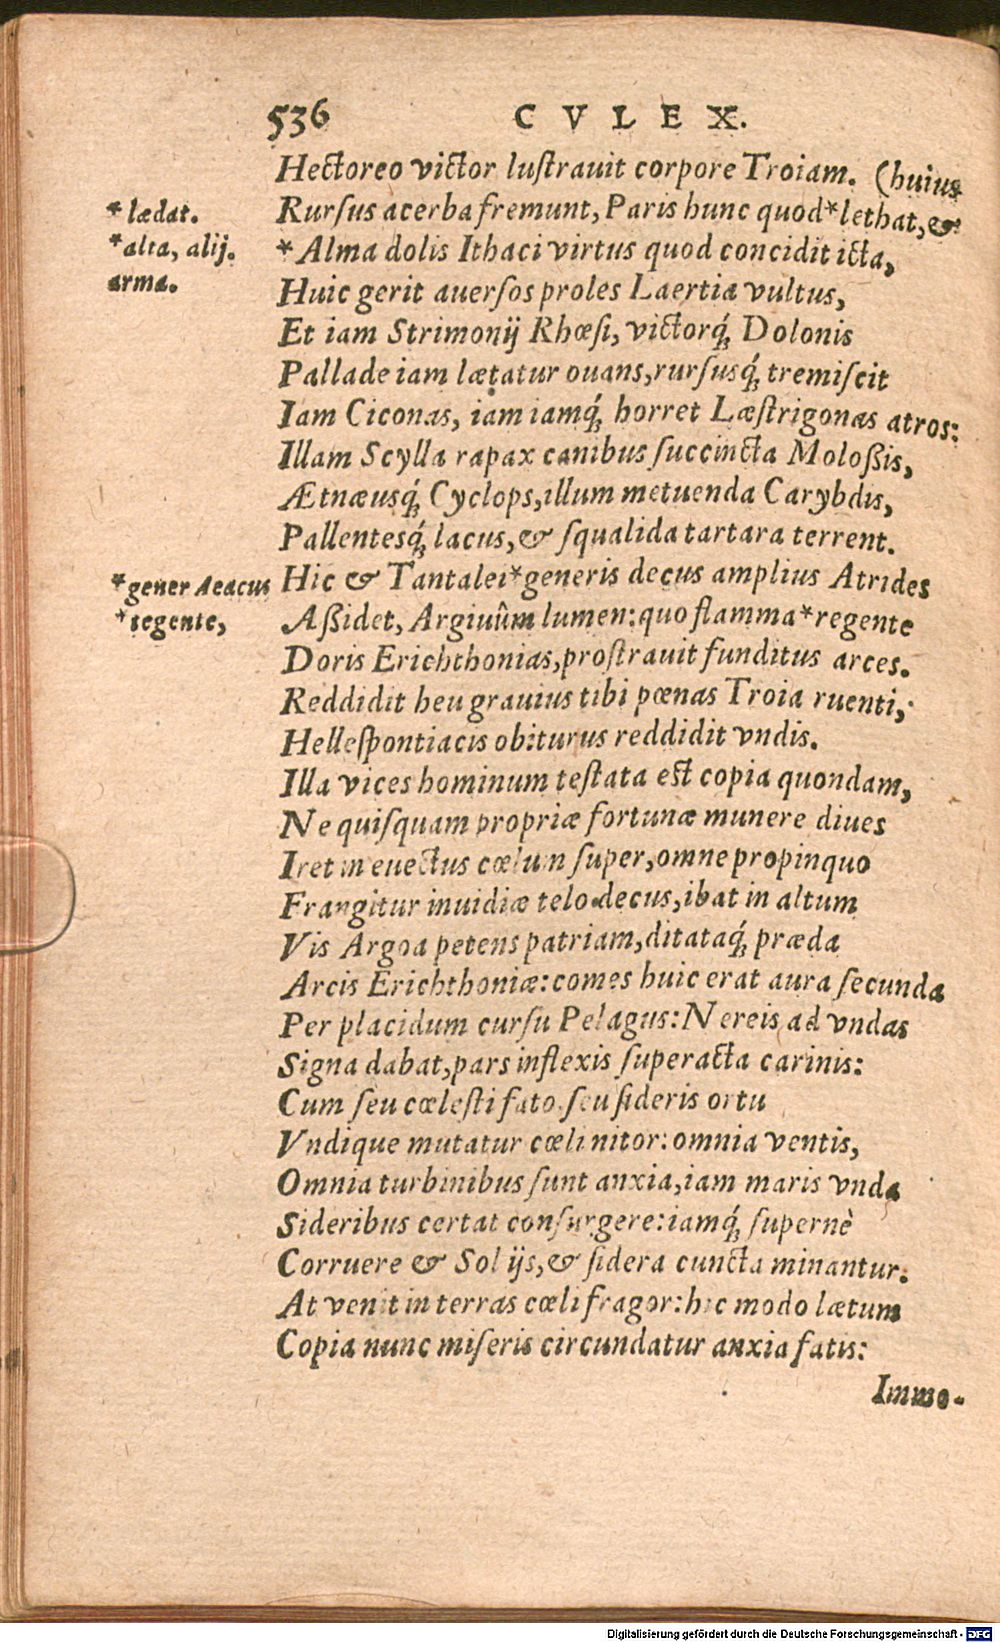 536 CVLEX.
Hectoreo victor lustrauit corpore Troiam. (huius
Rursus acerba fremunt, Paris hunc quod*lethat, &
* Alma dolis Ithaci virtus quod concidit icta,
Huic gerit auersos proles Laertia vultus,
Et iam Strimonij Rhœsi, victorq́; Dolonis
Pallade iam lætatur ouans, rursusq́; tremiscit
Iam Ciconas, iam iamq́; horret Læstrigonas atros:
Illam Scylla rapax canibus succincta Moloßis,
Ætnæusq́; Cyclops, illum metuenda Carybdis,
Pallentesq́; lacus, & squalida tartara terrent.
Hic & Tantalei*generis decus amplius Atrides
Aßidet, Argiuûm lumen: quo flamma*regente
Doris Erichthonias, prostrauit funditus arces.
Reddidit heu grauius tibi pœnas Troia ruenti,
Hellespontiacis obiturus reddidit vndis.
Illa vices hominum testata est copia quondam,
Ne quisquam propriæ fortunæ munere diues
Iret in euectus cœlum super, omne propinquo
Frangitur inuidiæ telo decus, ibat in altum
Vis Argoa petens patriam, ditataq́; præda
Arcis Erichthoniæ: comes huic erat aura secunda
Per placidum cursu Pelagus: Nereis ad vndas
Signa dabat, pars inflexis superacta carinis:
Cum seu cœlesti fato, seu sideris ortu
Vndique mutatur cœli nitor: omnia ventis,
Omnia turbinibus sunt anxia, iam maris vnda
Sideribus certat consurgere: iamq́; supernè
Corruere & Sol ijs, & sidera cuncta minantur.
At venit in terras cœli fragor: hic modo lætum
Copia nunc miseris circundatur anxia fatis:
Immo-
* lædat.
*alta, alij.
arma.
*gener Aeacus
*tegente,
Digitalisierung gefördert durch die Deutsche Forschungsgemeinschaft - DFG